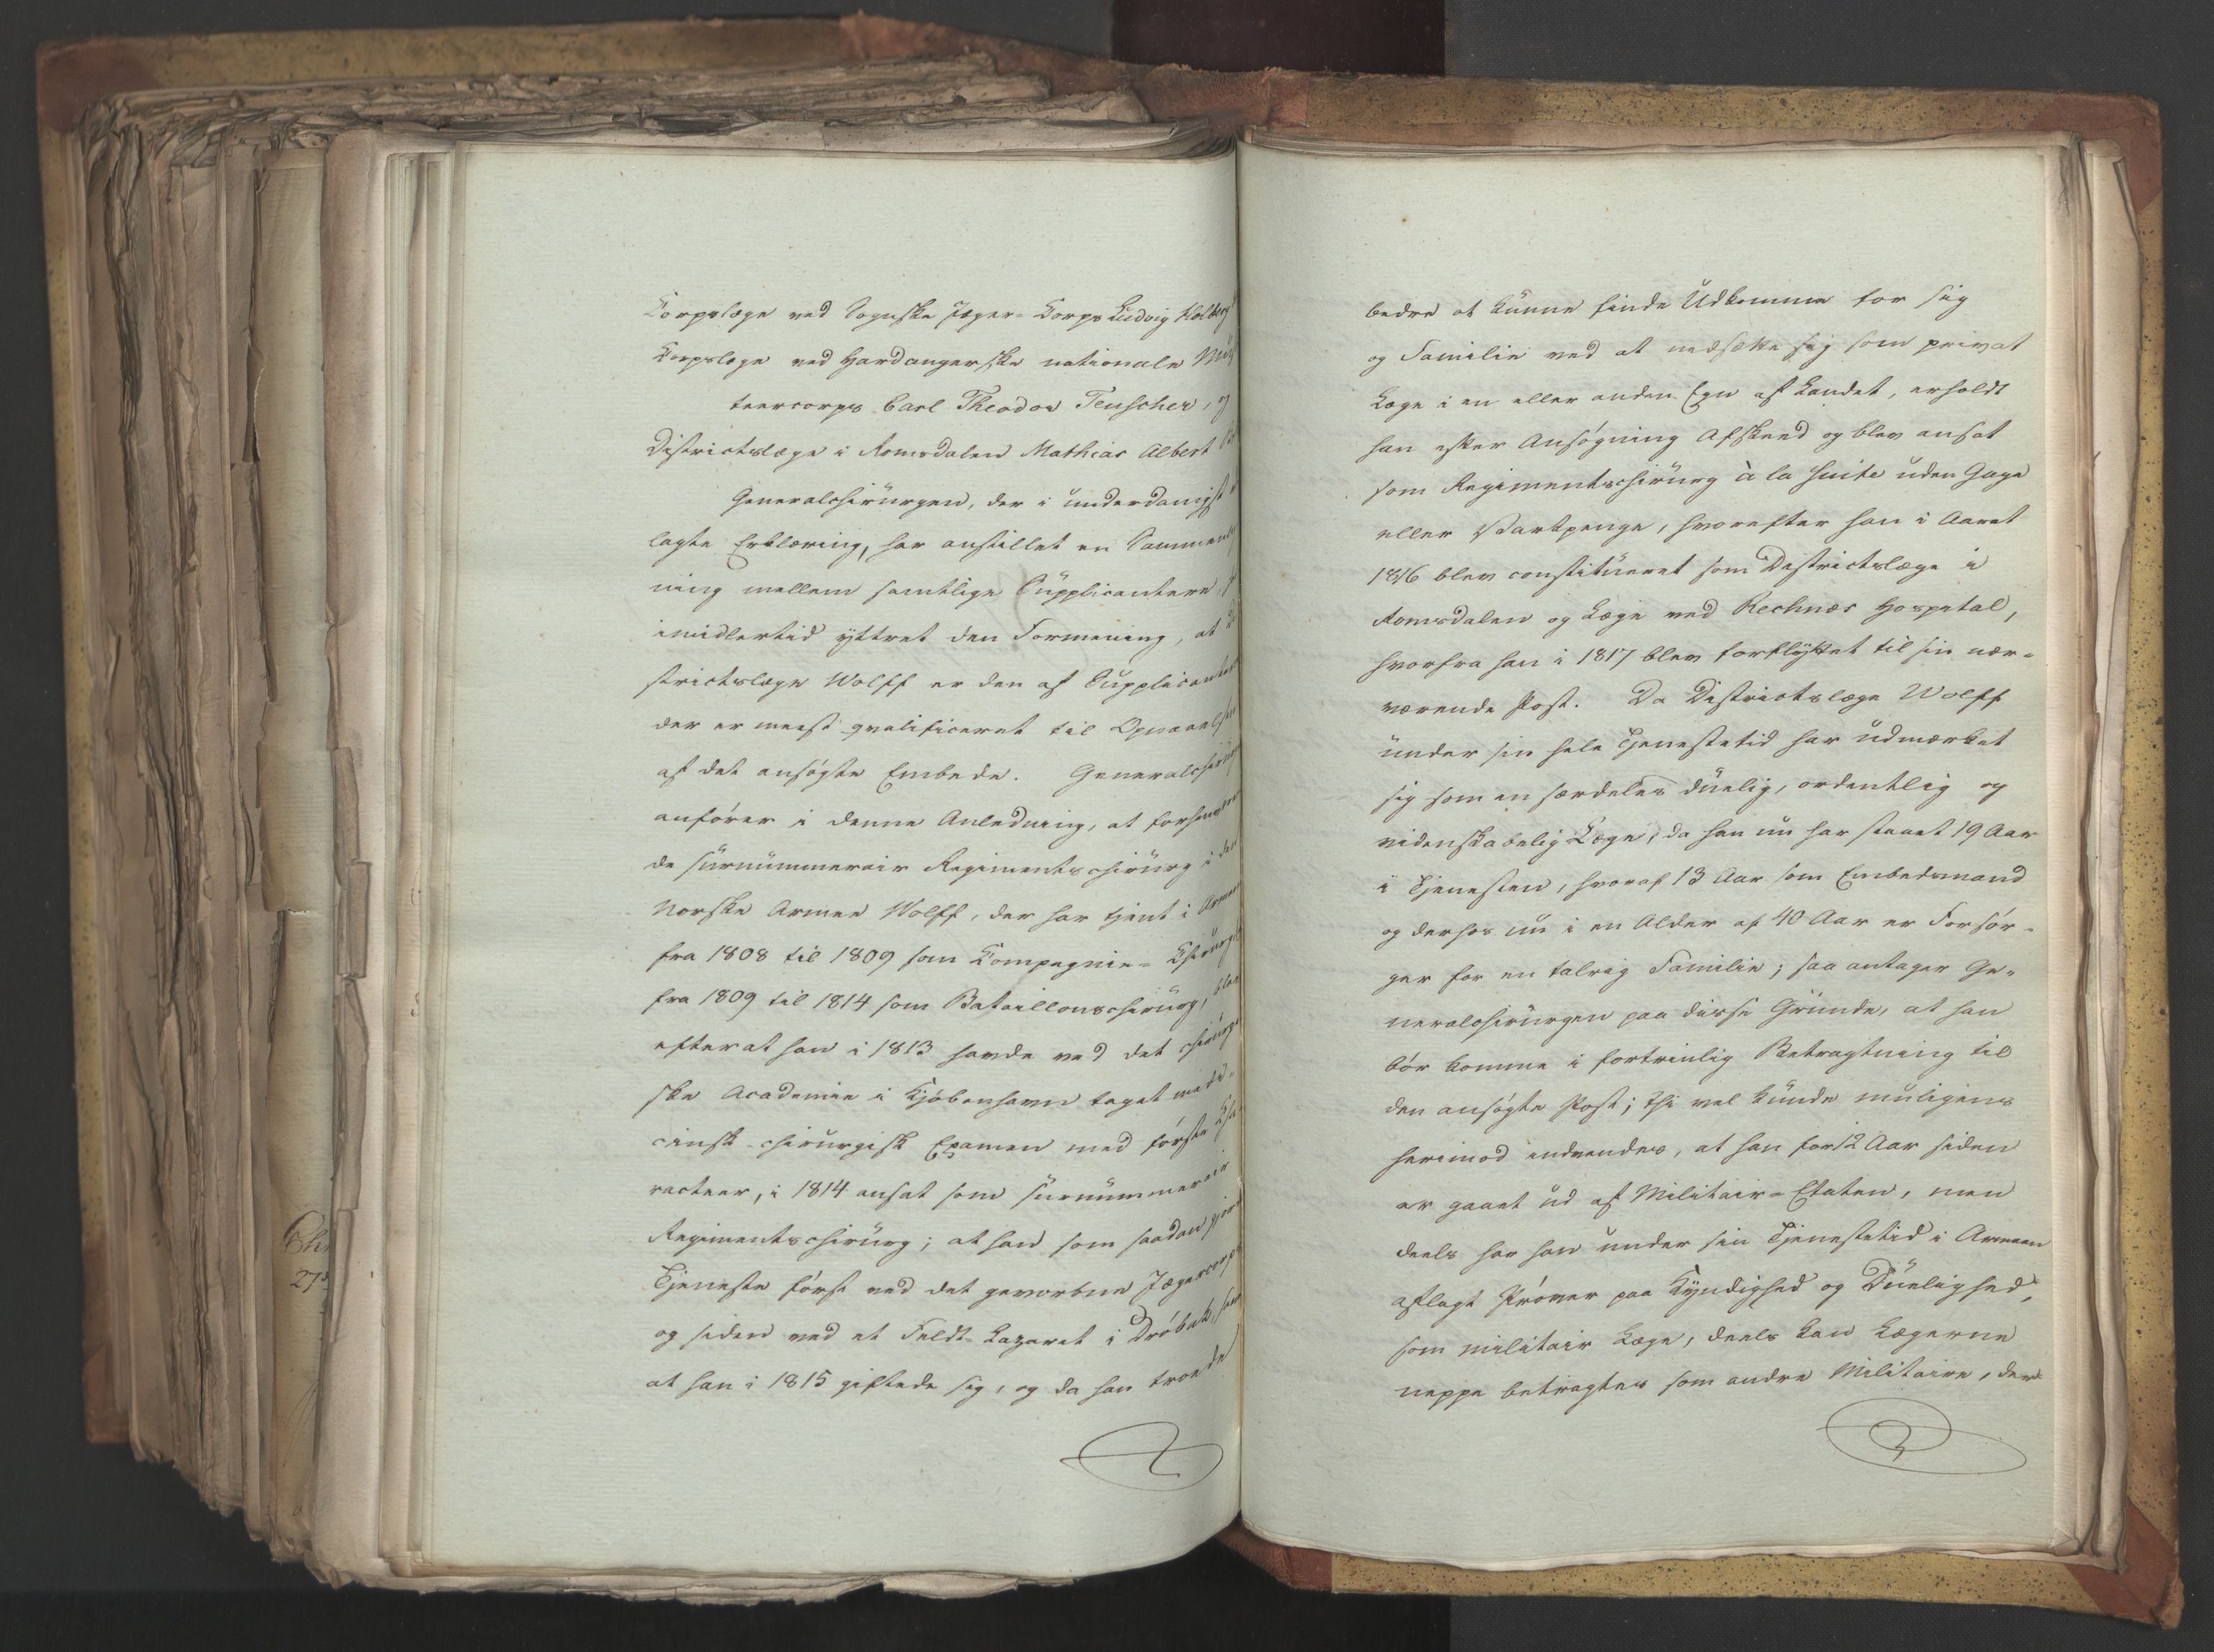 Korpslæge ved Sognske Jæger-Korps Ludvig Holberg
Korpslæge ved Hardangerske nationale Mus
teercorps Carl Theodor Teuscher, og
Districtslæge i Romsdalen Mathias Albert
Generalchirurgen, der i underdanigst
lagte Erklæring, har anstillet en Sammenlig
ning mellem samtlige Supplicantere,
imidlertid yttret den Formening, at Di
strictslæge Wolff er den af Supplicantere
der er meest qvalificeret til Opnaaelse
af det ansøgte Embede. Generalchirurg
anfører i denne Anledning, at forhenværen
de surnummerair Regimentschirurg i den
Norske Armee Wolff, der har tjent i Armee
fra 1808 til 1809 som Kompagnie-Chirurg
fra 1809 til 1814 som Bataillonschirurg, blev
efterat han i 1813 havde ved det chirurgi
ske Academie i Kjøbenhavn taget medi-
cinsk-chirurgisk Examen med første Cha
racteer, i 1814 ansat som surnummerair
Regimentschirurg; at han som saadan gjord
Tjeneste først ved det gevorbne Jægercorps
og siden ved et Feldt-Lazaret i Drøbak, samt
at han i 1815 giftede sig, og da han troede
bedre at kunne finde Udkomme for sig
og Familie ved at nedsætte sig som privat
Læge i en eller anden Egn af Landet, erholdt
han efter Ansøgning Afskeed og blev ansat
som Regimentschirurg à la suite uden Gage
eller Vartpenge, hvorefter han i Aaret
1816 blev constitueret som Districtslæge i
Romsdalen og Læge ved Recknæs Hospital,
hvorfra han i 1817 blev forflyttet til sin nær-
værende Post. Da Districtslæge Wolff
under sin hele Tjenestetid har udmærket
sig som en særdeles duelig, ordentlig og
videnskabelig Læge, da han nu har staaet 19 Aar
i Tjenesten, hvoraf 13 Aar som Embedsmand
og derhos nu i en Alder af 40 Aar er Forsør-
ger for en talrig Familie; saa antager Ge-
neralchirurgen paa disse Grunde, at han
bør komme i fortrinlig Betragtning til
den ansøgte Post; thi vel kunde muligens
herimod indvendes, at han for 12 Aar siden
er gaaet ud af Militair-Etaten, men
deels har han under sin Tjenestetid i Armeen
aflagt Prøver paa Kyndighed og Duelighed,
som militair Læge, deels kan Lægerne
neppe betragtes som andre Militaire, der